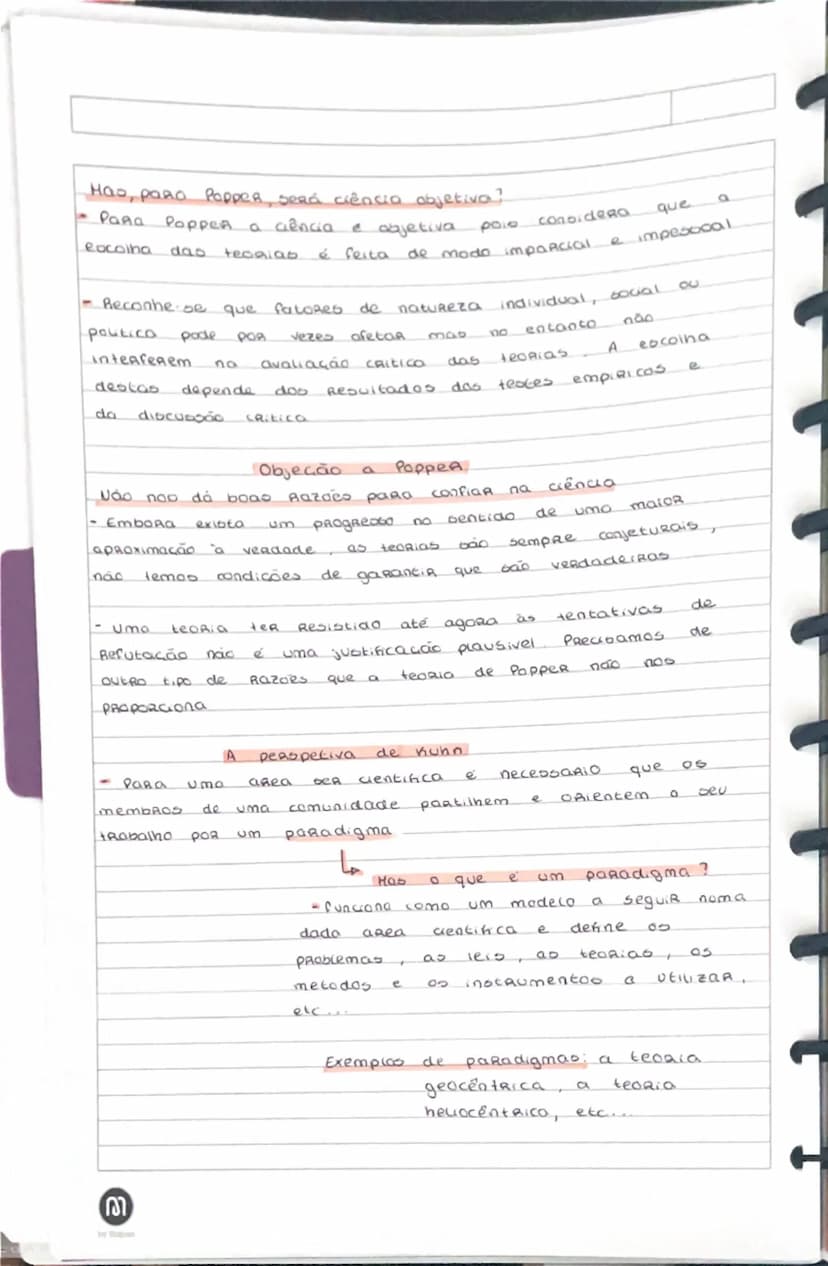 Mas, para Popper, será ciência objetiva?
- Para Popper a ciência é objetiva pois considera que a
escolha das teorias é feita de modo imparcial e impessoal
- Reconhe-se que fatores de natureza individual, social ou
politica pode por vezes afetar mas no entanto não
interferem na avaliação critica das teorias. A escolha
destas depende dos resultados dos testes empiricos e
da discussão critica
Objeção a Popper
Não nos dá boas razões para confiar na ciência
- Embora exista um progresso no sentido de uma maior
aproximação à verdade, as teorias são sempre conjeturais,
não temos condições de garantir que são verdadeiras
- uma teoria ter resistido até agora às tentativas de
refutação não é uma justificação plausivel. Precisamos de
outro tipo de razões que a teoria de Popper não nos
proporciona
A perspetiva de Kuhn
- Para uma area ser cientifica é necessario que os
membros de uma comunidade partilhem e orientem o seu
trabalho por um paradigma
Mas o que é um paradigma?
- funciona como um modelo a seguir numa
dada area cientifica e define os
problemas, as leis, as teorias, os
metodos e os instrumentos a utilizar,
etc...
Exemplos de paradigmas: a teoria
geocêntrica, a teoria
heliocêntrica, etc...